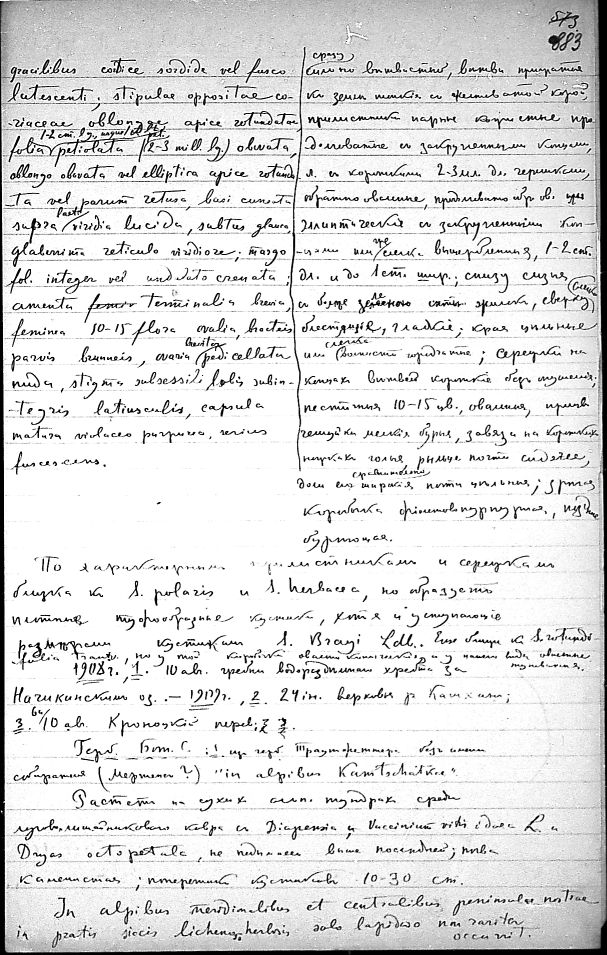 883
gracilibus cortice sordide vel fusco
lutescenti, stipulae oppositae co-
riaceae oblongae apice rotundatae,
folia petiolata (2-3 mill. lg.) obovata
oblongo obovata vel elliptica apice rotunda-
ta vel parum retusa, basi cuneata
supra laete viridia lucida, subtus glauca,
glaberrima reticulo viridiore; margo
fol. integer vel undulato crenata,
amenta terminalia brevia,
feminea 10-15 flora ovalia, bracteis
parvis brunneis, ovaria breviter pedicellata
nuda, stigma subsessili lobis subin-
tegris latiusculis, capsula
matura violaceo purpurea, serius
fuscescens.
сразу
сильно ветвистый, ветви прижатыя
къ земле тонкія съ желтоватой корой,
прилистники парные кожистые про-
долговатые съ закругленными концами,
л. съ короткими 2-3 мл. дл. черешками,
обратно овальные, продолговато обр. ов. или
эллиптическіе съ закругленными кон-
цами или слегка выемчатыя, 1-2 снт.
дл. и до 1 снт. шир.; снизу сизыя
съ более зеленою сетью жилокъ, сверху
блестящіе, гладкіе; края цельные
или слегка волнисто городчатые; сережки на
концахъ ветвей короткіе безъ опушенія,
пестичныя 10-15 цв., овальныя, прицв.
чешуйки мелкія бурыя, завязь на короткихъ
ножкахъ голыя рыльце почти сидячее,
доли его сравнительно широкія почти цельныя; зрелая
коробочка фіолетовопурпурная, позднее
буреющая.
По характернымъ прилистникамъ и сережкамъ
близка къ S. polaris и S. herbacea, но образуетъ
плотные торфообразные кустики, хотя и уступающіе
размерами кустикамъ S. Brayi Ldb. Еще ближе къ S. rotundi-
folia Trautv., но у той коробочки
1908 г., 1. 10 ав. гребни водораздельнаго хребта за
Начикинскимъ оз. — 1909 г., 2. 24 іюн. верховья р.
3. 6/10 ав. Кроноцкій перев.;
Герб. Бот. С.: 1 экз. герб. Траутфеттера безъ имени
собирателя (Мертенсъ?) "in alpibus Kamtschatkae".
Растетъ на сухихъ альп. тундрахъ среди
луговолишайниковаго ковра съ Diapensia и Vaccinium vitis idaea L. и
Dryas octopetala, не поднимаясь выше последней; почва
каменистая; поперечникъ кустиковъ 10-30 ст.
In alpibus meridionalibus et centralibus peninsulae nostrae
in pratis siccis lichenoso-herbosis solo lapidoso non rariter
occurrit.